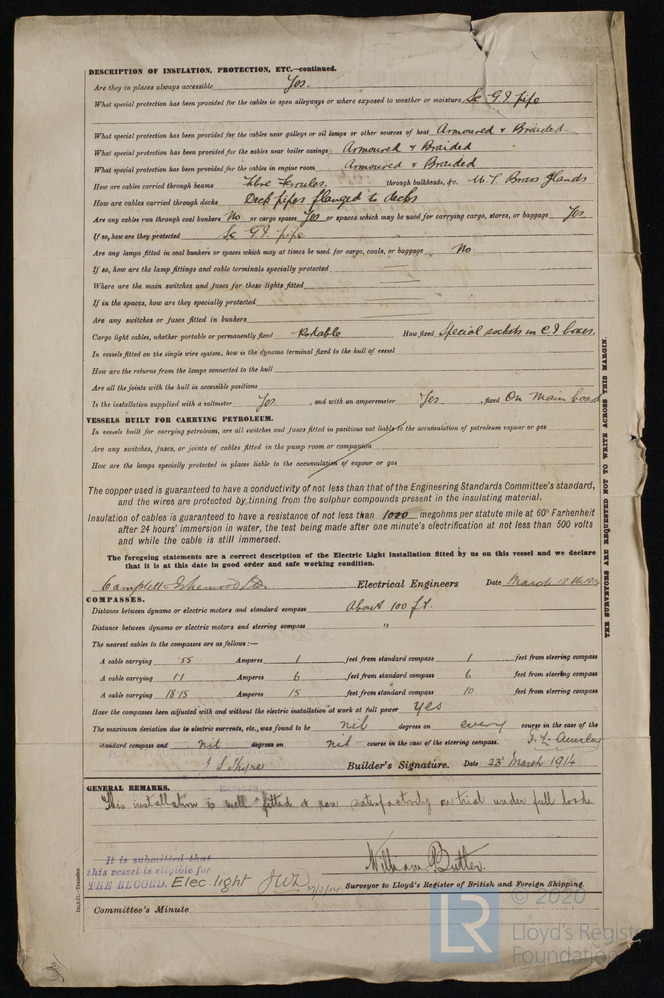 DESCRIPTION OF INSULATION, PROTECTION, ETC.—continued.
Are they in places always accessible Yes.
What special protection has been provided for the cables in open alleyways or where exposed to weather or moisture Sc G I pipe
What special protection has been provided for the cables near galleys or oil lamps or other sources of heat Armoured & Braided
What special protection has been provided for the cables near boiler casings Armoured & Braided
What special protection has been provided for the cables in engine room Armoured & Braided
How are cables carried through beams fibre ferrules. through bulkheads, &c. W.T. Brass Glands
How are cables carried through decks Deck pipes flanged to decks
Are any cables run through coal bunkers No or cargo spaces Yes or spaces which may be used for carrying cargo, stores, or baggage Yes
If so, how are they protected Sc G.I. pipe
Are any lamps fitted in coal bunkers or spaces which may at times be used for cargo, coals, or baggage No
If so, how are the lamp fittings and cable terminals specially protected
Where are the main switches and fuses for these lights fitted
If in the spaces, how are they specially protected
Are any switches or fuses fitted in bunkers
Cargo light cables, whether portable or permanently fixed Portable How fixed Special sockets in C I boxes.
In vessels fitted on the single wire system, how is the dynamo terminal fixed to the hull of vessel
How are the returns from the lamps connected to the hull
Are all the joints with the hull in accessible positions
Is the installation supplied with a voltmeter Yes. , and with an amperemeter Yes , fixed On main board
VESSELS BUILT FOR CARRYING PETROLEUM.
In vessels built for carrying petroleum, are all switches and fuses fitted in positions not liable to the accumulation of petroleum vapour or gas
Are any switches, fuses, or joints of cables fitted in the pump room or companion
How are the lamps specially protected in places liable to the accumulation of vapour or gas
The copper used is guaranteed to have a conductivity of not less than that of the Engineering Standards Committee's standard,
and the wires are protected by tinning from the sulphur compounds present in the insulating material.
Insulation of cables is guaranteed to have a resistance of not less than 1000 megohms per statute mile at 60° Farhenheit
after 24 hours' immersion in water, the test being made after one minute's electrification at not less than 500 volts
and while the cable is still immersed.
The foregoing statements are a correct description of the Electric Light installation fitted by us on this vessel and we declare
that it is at this date in good order and safe working condition.
Campbell & Isherwood Ltd. Electrical Engineers Date March 18th 1914
COMPASSES.
Distance between dynamo or electric motors and standard compass About 100 ft.
Distance between dynamo or electric motors and steering compass "
The nearest cables to the compasses are as follows:—
A cable carrying .55 Amperes 1 feet from standard compass 1 feet from steering compass
A cable carrying 11 Amperes 6 feet from standard compass 6 feet from steering compass
A cable carrying 18.15 Amperes 15 feet from standard compass 10 feet from steering compass
Have the compasses been adjusted with and without the electric installation at work at full power Yes
The maximum deviation due to electric currents, etc., was found to be nil degrees on every course in the case of the
standard compass and nil degrees on nil course in the case of the steering compass.
Builder's Signature. Date 23 March 1914
MANAGER
GENERAL REMARKS.
This installation is well fitted & ran satisfactorily on trial under full load
William Butler.
It is submitted that
this vessel is eligible for
THE RECORD. Elec. light JWD
Surveyor to Lloyd's Register of British and Foreign Shipping.
Committee's Minute
THE SURVEYORS ARE REQUESTED NOT TO WRITE ACROSS THIS MARGIN.
© 2020
LR
Lloyd's Register
Foundation